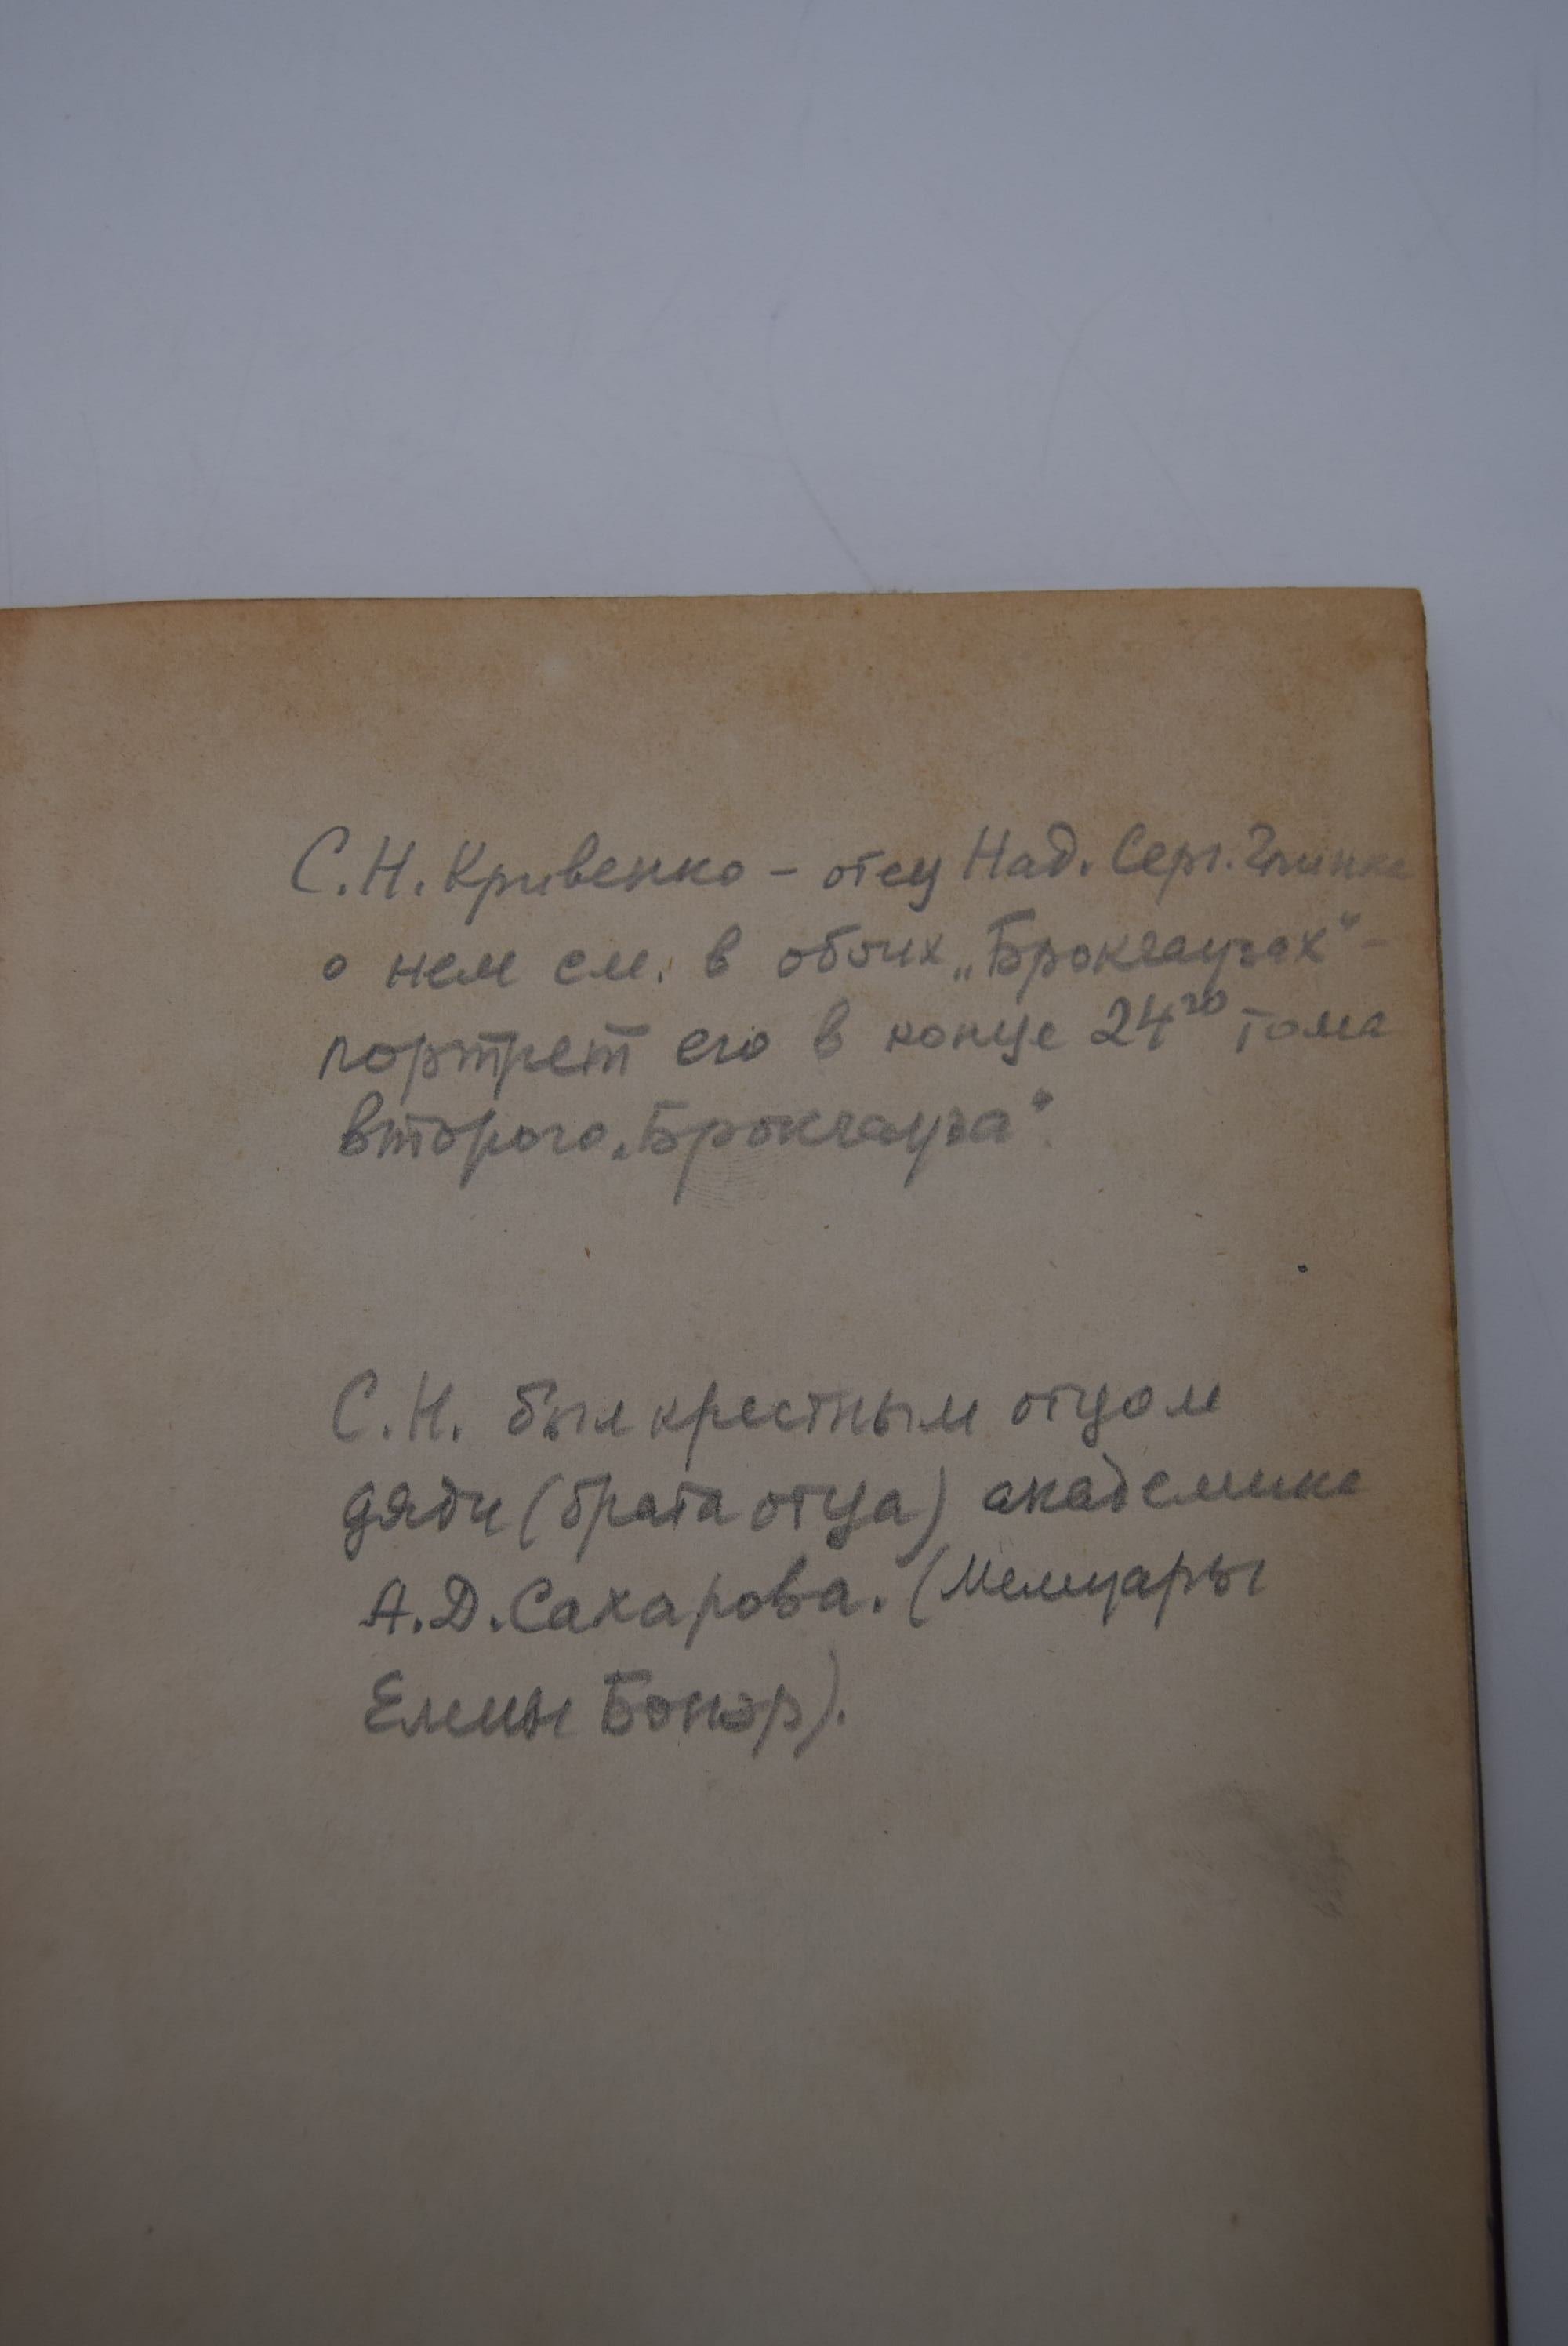 С.Н. Кривенко – отец Над. Серг. Глинка
о нем см. в обоих „Брокгаузах“ –
портрет его в конце 24го тома
второго „Брокгауза“
С.Н. был крестным отцом
дяди (брата отца) академика
А.Д. Сахарова. (Мемуары
Елены Бонэр).